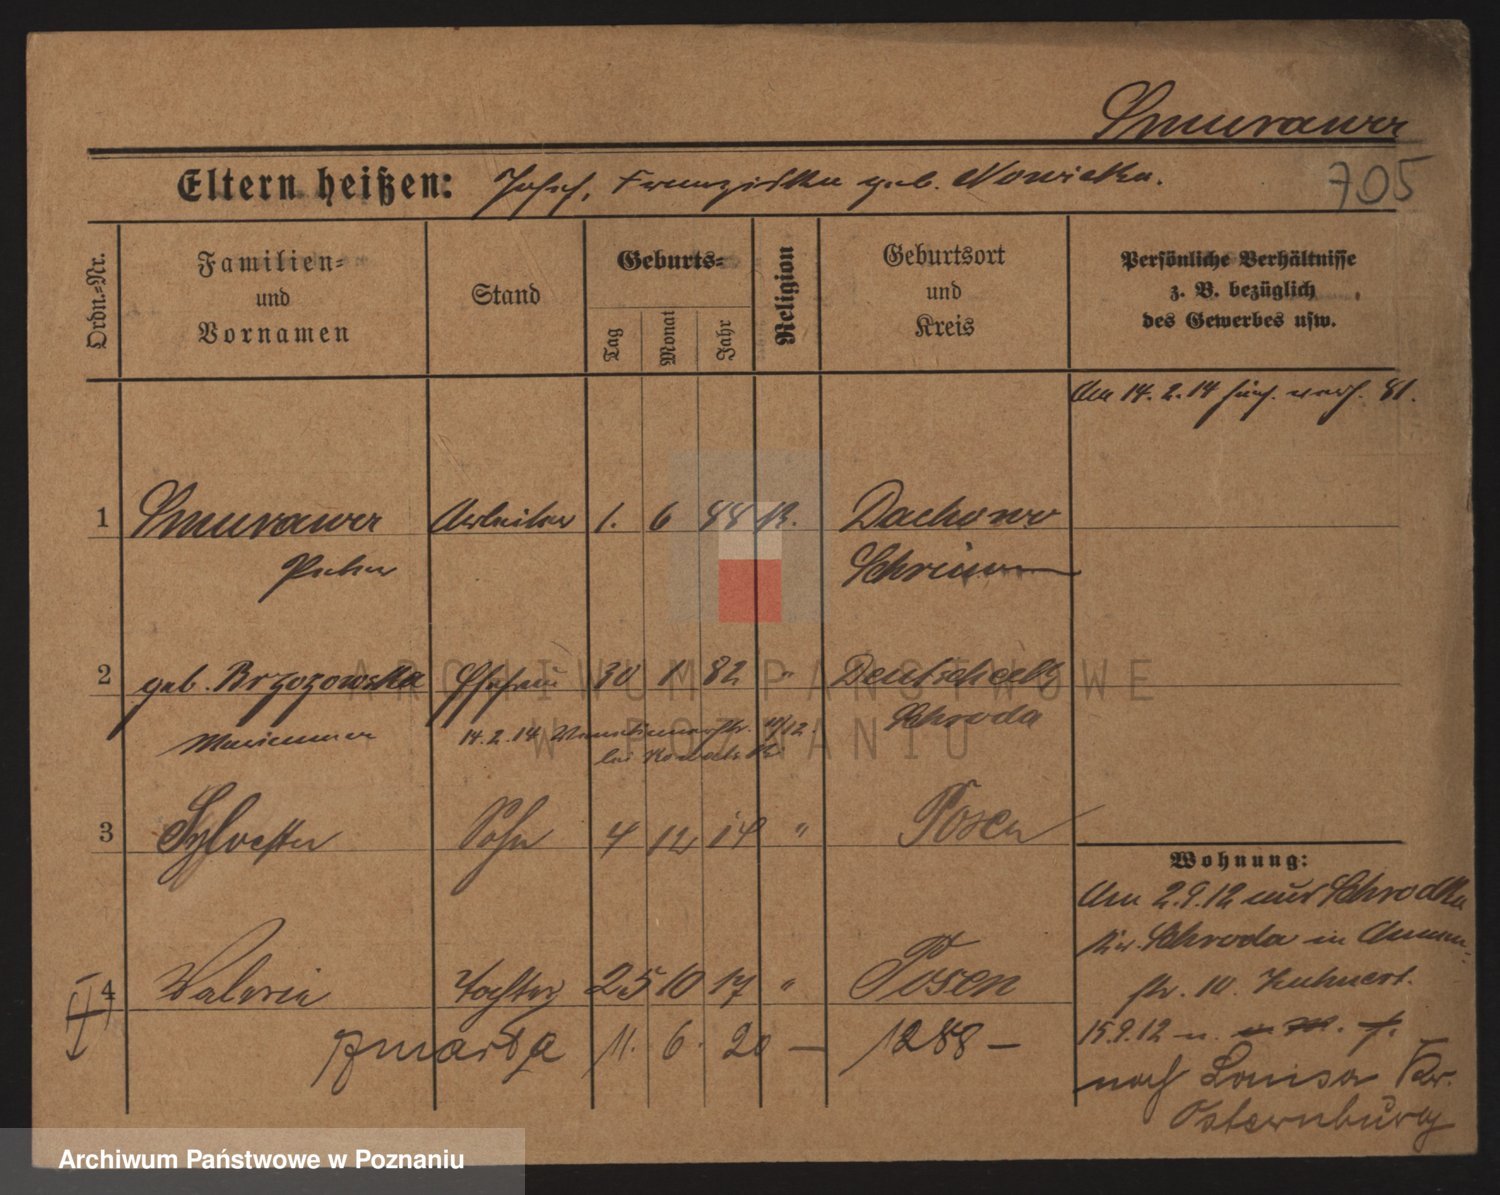 Smurawa
705
Eltern heißen: Josef, Franziska geb. Nowicka.
Ordn.=Nr.
Familien=
und
Vornamen
Stand
Geburts=
Tag
Monat
Jahr
Religion
Geburtsort
und
Kreis
Persönliche Verhältnisse
z. B. bezüglich
des Gewerbes usw.
Am 14. 2. 14 verh. 81.
1 Smurawa Arbeiter 1. 6 88 k. Dachowo
Peter Schrimm
2 geb. Brzozowska Ehefrau 30 1 82 " Deutscheck
Marianna 14. 2. 14 11/12. Schroda
bei
3 Sylvester Sohn 4 12 14 " Posen
Wohnung:
Am 2.9.12 aus Schrodka
Kr. Schroda in
str. 10.
4 Valeria Tochter 25 10 17 " Posen
15.9.12 n.
zmarła 11. 6. 20 — 1288 —
nach Louisa Kr.
Osternburg
ARCHIWUM PAŃSTWOWE
W POZNANIU
Archiwum Państwowe w Poznaniu